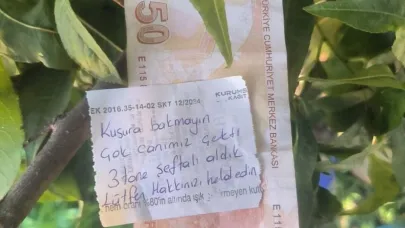 50
E 115
TÜRKİYE CUMHURİYET MERKEZ BANKASI
EK 2016.35-14-02 SKT 12/20
KURUMS
Kusura bakmayın
Çok canımız çekti
3 tane şeftali aldık
Lütfen Hakkınızı helal edin
nem oranı %80'in altında ışık
meyen kuru
E 115